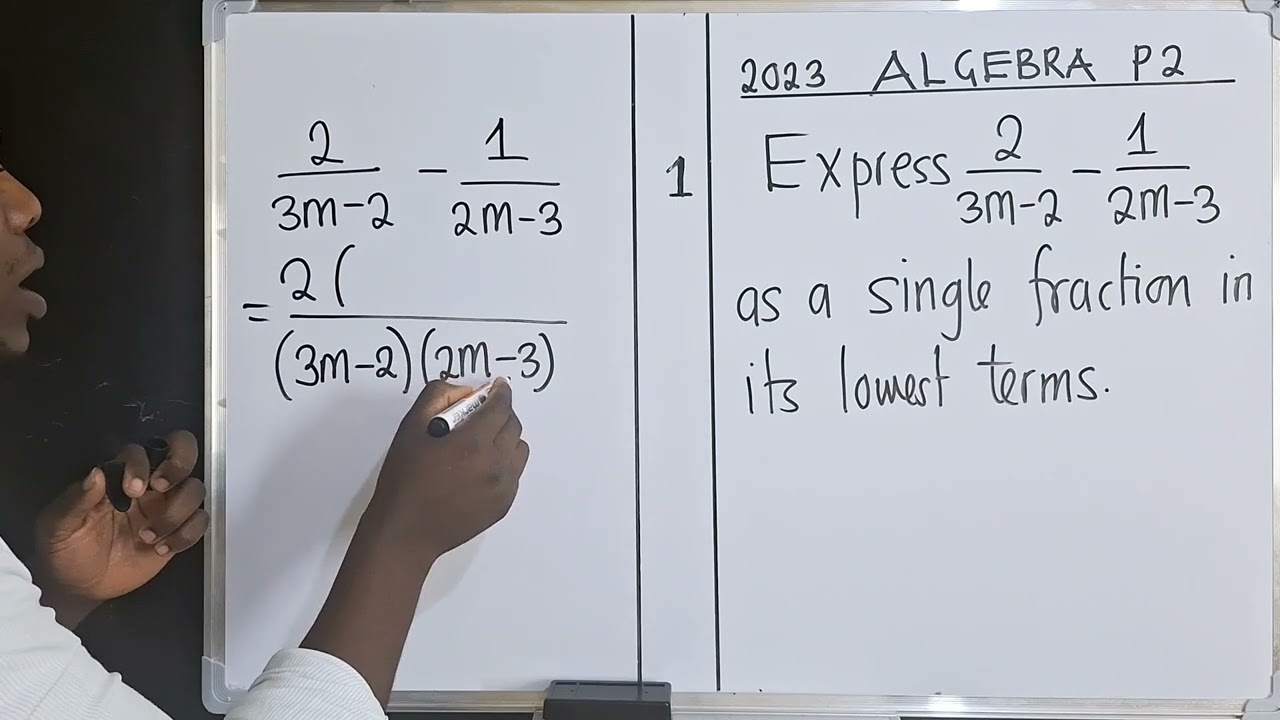 2/(3m-2) - 1/(2m-3)
= 2(/(3m-2)(2m-3)
1
2023 ALGEBRA P2
Express 2/(3m-2) - 1/(2m-3)
as a single fraction in
its lowest terms.
marker